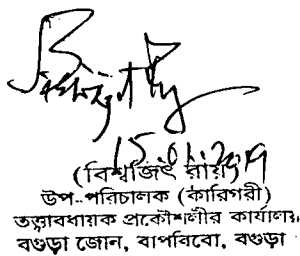 15.01.2019
(বিশ্বজিৎ রায়)
উপ-পরিচালক (কারিগরী)
তত্ত্বাবধায়ক প্রকৌশলীর কার্যালয়,
বগুড়া জোন, বাপবিবো, বগুড়া